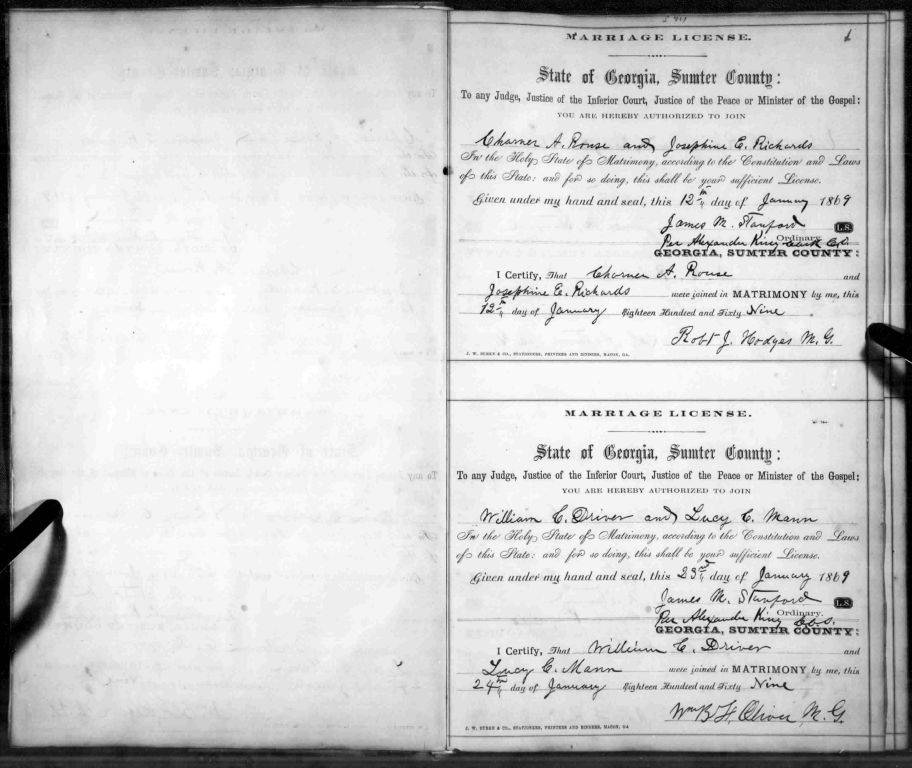 MARRIAGE LICENSE.
State of Georgia, Sumter County:
To any Judge, Justice of the Inferior Court, Justice of the Peace or Minister of the Gospel:
YOU ARE HEREBY AUTHORIZED TO JOIN
Charner A. Rouse and Josephine E. Richards
In the Holy State of Matrimony, according to the Constitution and Laws
of this State: and for so doing, this shall be your sufficient License.
Given under my hand and seal, this 12th day of January 1869
James M. Stanford L.S.
Ordinary.
Per Alexander King
GEORGIA, SUMTER COUNTY:
I Certify, That Charner A. Rouse and
Josephine E. Richards were joined in MATRIMONY by me, this
12th day of January Eighteen Hundred and Sixty Nine
Robt J. Hodges M.G.
J. W. BURKE & CO., STATIONERS, PRINTERS AND BINDERS, MACON, GA.
MARRIAGE LICENSE.
State of Georgia, Sumter County:
To any Judge, Justice of the Inferior Court, Justice of the Peace or Minister of the Gospel:
YOU ARE HEREBY AUTHORIZED TO JOIN
William C. Driver and Lucy C. Mann
In the Holy State of Matrimony, according to the Constitution and Laws
of this State: and for so doing, this shall be your sufficient License.
Given under my hand and seal, this 23rd day of January 1869
James M. Stanford L.S.
Ordinary.
Per Alexander King
GEORGIA, SUMTER COUNTY:
I Certify, That William C. Driver and
Lucy C. Mann were joined in MATRIMONY by me, this
24th day of January Eighteen Hundred and Sixty Nine
Wm B. H. Oliver, M.G.
J. W. BURKE & CO., STATIONERS, PRINTERS AND BINDERS, MACON, GA